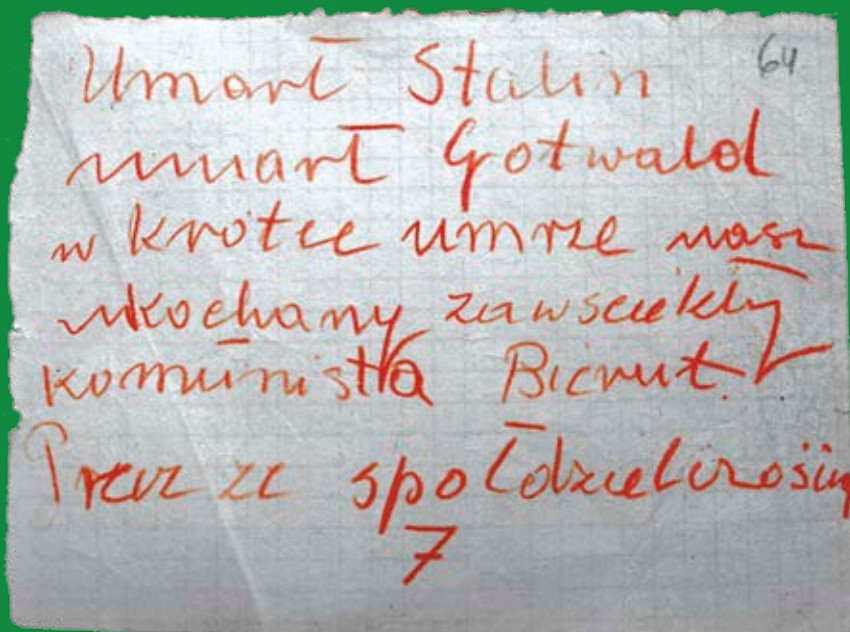 64
Umarł Stalin
umarł Gotwald
w krótce umrze nasz
ukochany zawściekły
komunista Bierut.
Precz ze spółdzielczością
7